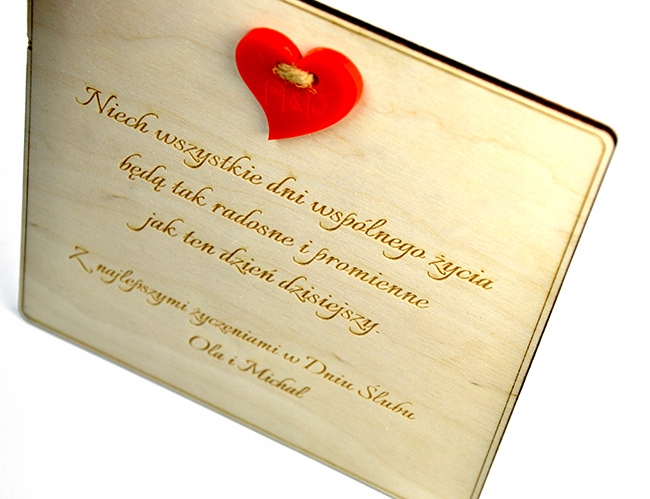 Niech wszystkie dni wspólnego życia
będą tak radosne i promienne
jak ten dzień dzisiejszy.
Z najlepszymi życzeniami w Dniu Ślubu
Ola i Michał